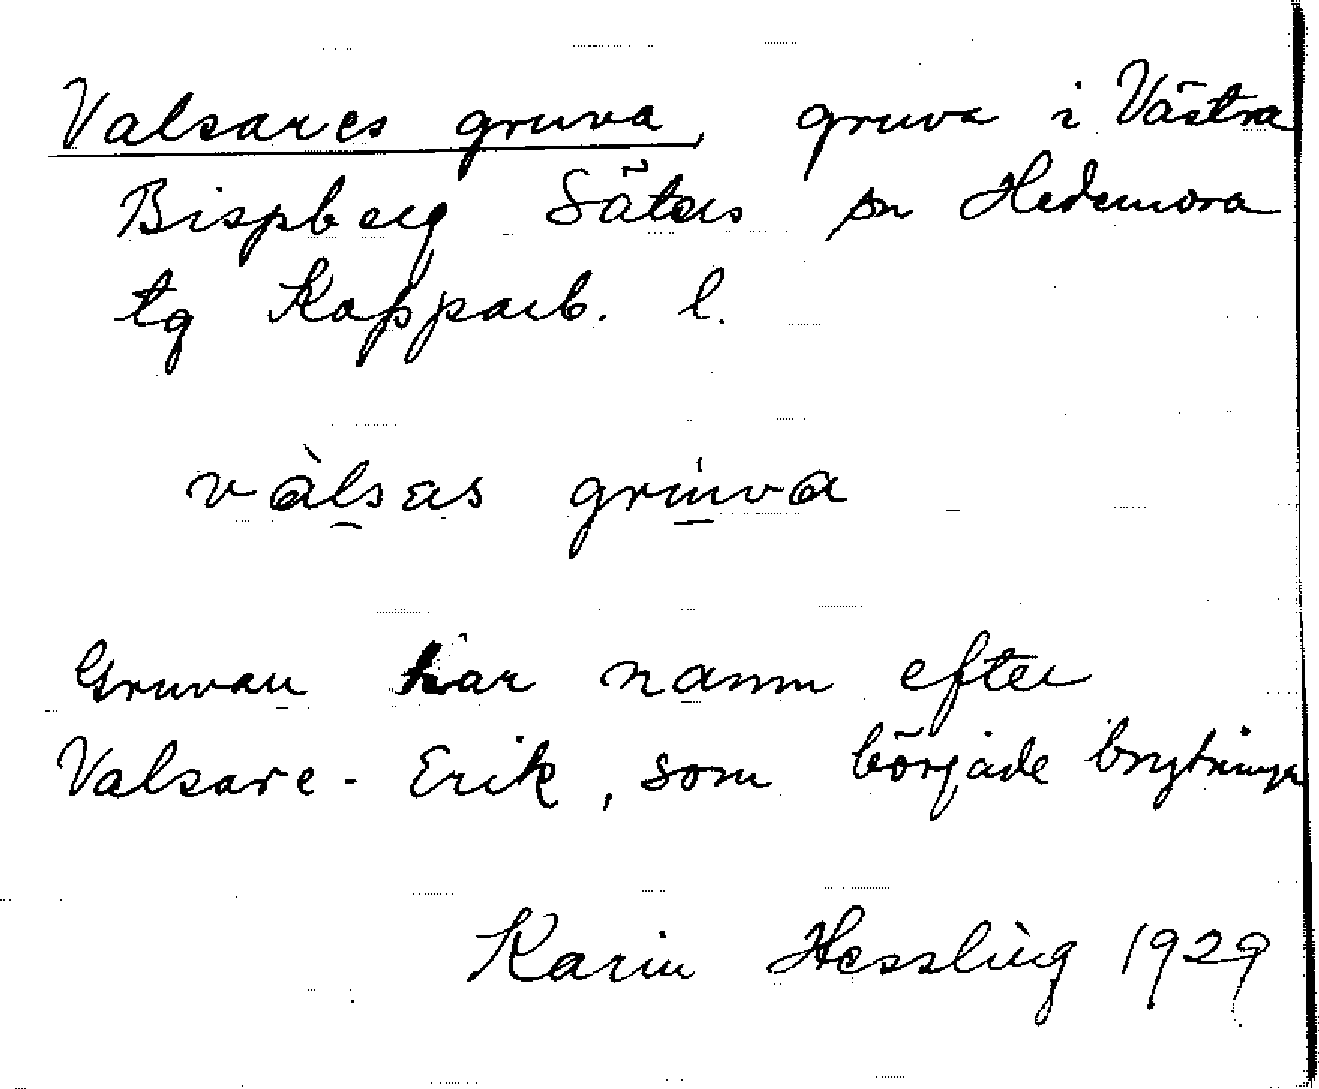 Valsares gruva, gruva i Västra
Bispberg Säters sn Hedemora
tg Kopparb. l.
vàlsas gruva
Gruvan har namn efter
Valsare-Erik, som började brytningen
Karin Hessling 1929